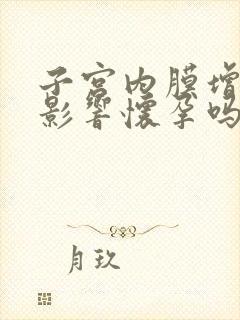 子宫内膜增
影响怀孕吗
月玖